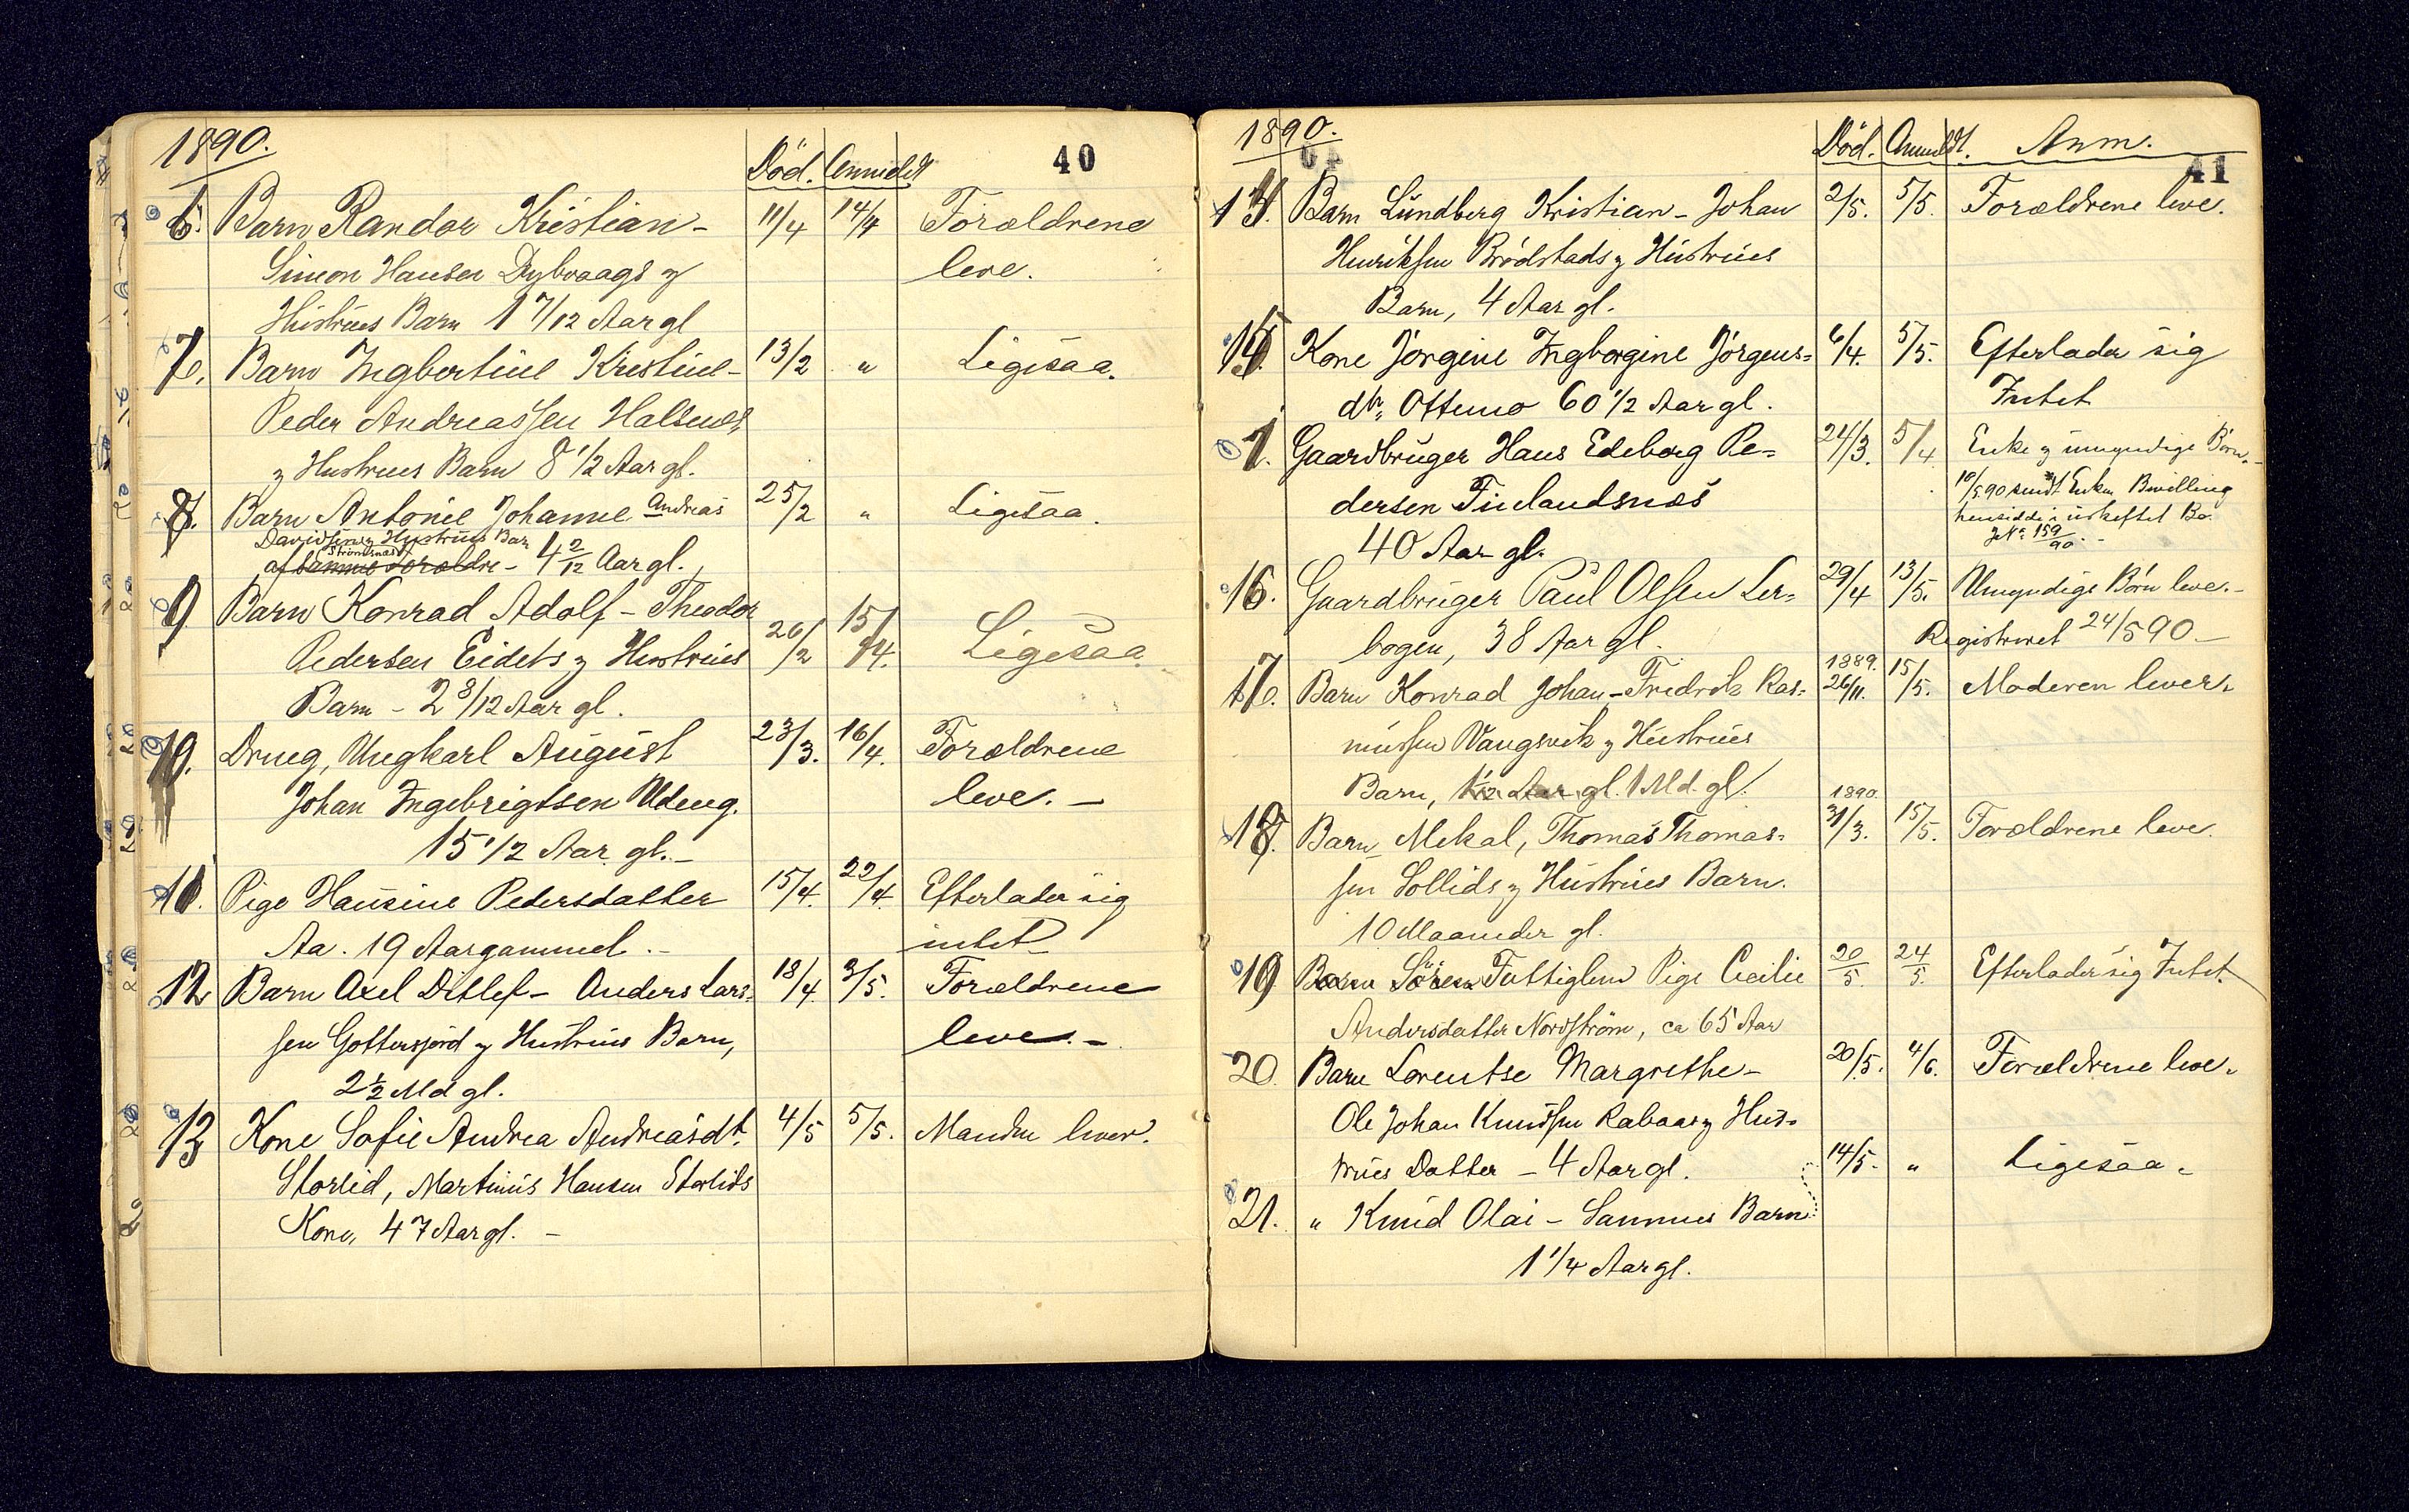 1890.
Död. Anmeldt 40
6. Barn Randor Kristian- 11/4 14/4 Forældrene
Simon Hansen Dybvaags og leve.
Hustrues Barn 1 7/12 Aar gl
7. Barn Ingbertine Kristine- 13/2 " Ligesaa.
Peder Andreassen Halsnes
og Hustrues Barn 8 1/2 Aar gl.
8. Barn Antonie Johanne Andreas 25/2 " Ligesaa.
Davidsens og Hustrues Barn
Strømsnæs
af samme Forældre - 4 2/12 Aar gl.
9 Barn Konrad Adolf - Theodor
Pedersen Eidets og Hustrues 26/2 15/4. Ligesaa
Barn - 2 8/12 Aar gl.
10. Dreng, Ungkarl August 23/3. 16/4. Forældrene
Johan Ingebrigtsen Udeng. leve. -
15 1/2 Aar gl. -
11. Pige Hansine Pedersdatter 15/4. 22/4. Efterlader sig
Aa. 19 Aar gammel. - intet
12 Barn Axel Ditlef - Anders Lars- 18/4. 3/5. Forældrene
sen Gottersjord og Hustrues Barn, leve. -
2 1/2 Md gl.
13 Kone Sofie Andrea Andreasdt. 4/5 5/5. Manden lever.
Storlid, Martinus Hansen Storlids
Kone, 47 Aar gl. -
1890.
Död. Anmeldt. Anm.
41
14. Barn Lundberg Kristian - Johan 2/5. 5/5. Forældrene leve.
Henriksen Brødstads og Hustrues
Barn, 4 Aar gl.
15. Kone Jörgine Ingborgine Jörgens= 6/4. 5/5. Efterlader sig
dtr. Ottemo 60 1/2 Aar gl. Intet
1. Gaardbruger Hans Edeborg Pe= 24/3. 5/4. Enke og umyndige Börn. -
dersen Finlandsnæs 10/5 90 sendt Enken Bevilling
hensidde i uskiftet Bo.
40 Aar gl. JNo 159/90. -
16. Gaardbruger Paul Olsen Ler= 29/4 13/5. Umyndige Börn leve. -
bogen, 38 Aar gl. Registreret 24/5 90 -
17. Barn Konrad Johan - Fredrik Ras= 1889. 26/11. 15/5. Moderen lever.
mussen Vangsvik og Hustrues
Barn, 1/12 Aar gl. 1 Md. gl.
18. Barn Mekal, Thomas Thomas= 1890. 31/3. 15/5. Forældrene leve.
sen Sollids og Hustrues Barn.
10 Maaneder gl.
19 Barn Sören Fattiglem Pige Cecilie 20/5 24/5. Efterlader sig Intet.
Andersdatter Nordström, ca 65 Aar
20. Barn Lorentse Margrethe - 20/5. 4/6. Forældrene leve.
Ole Johan Knudsen Rabaas og Hus=
trues Datter - 4 Aar gl. 14/5. " Ligesaa.
21. " Knud Olai - Sammes Barn
1 1/4 Aar gl.